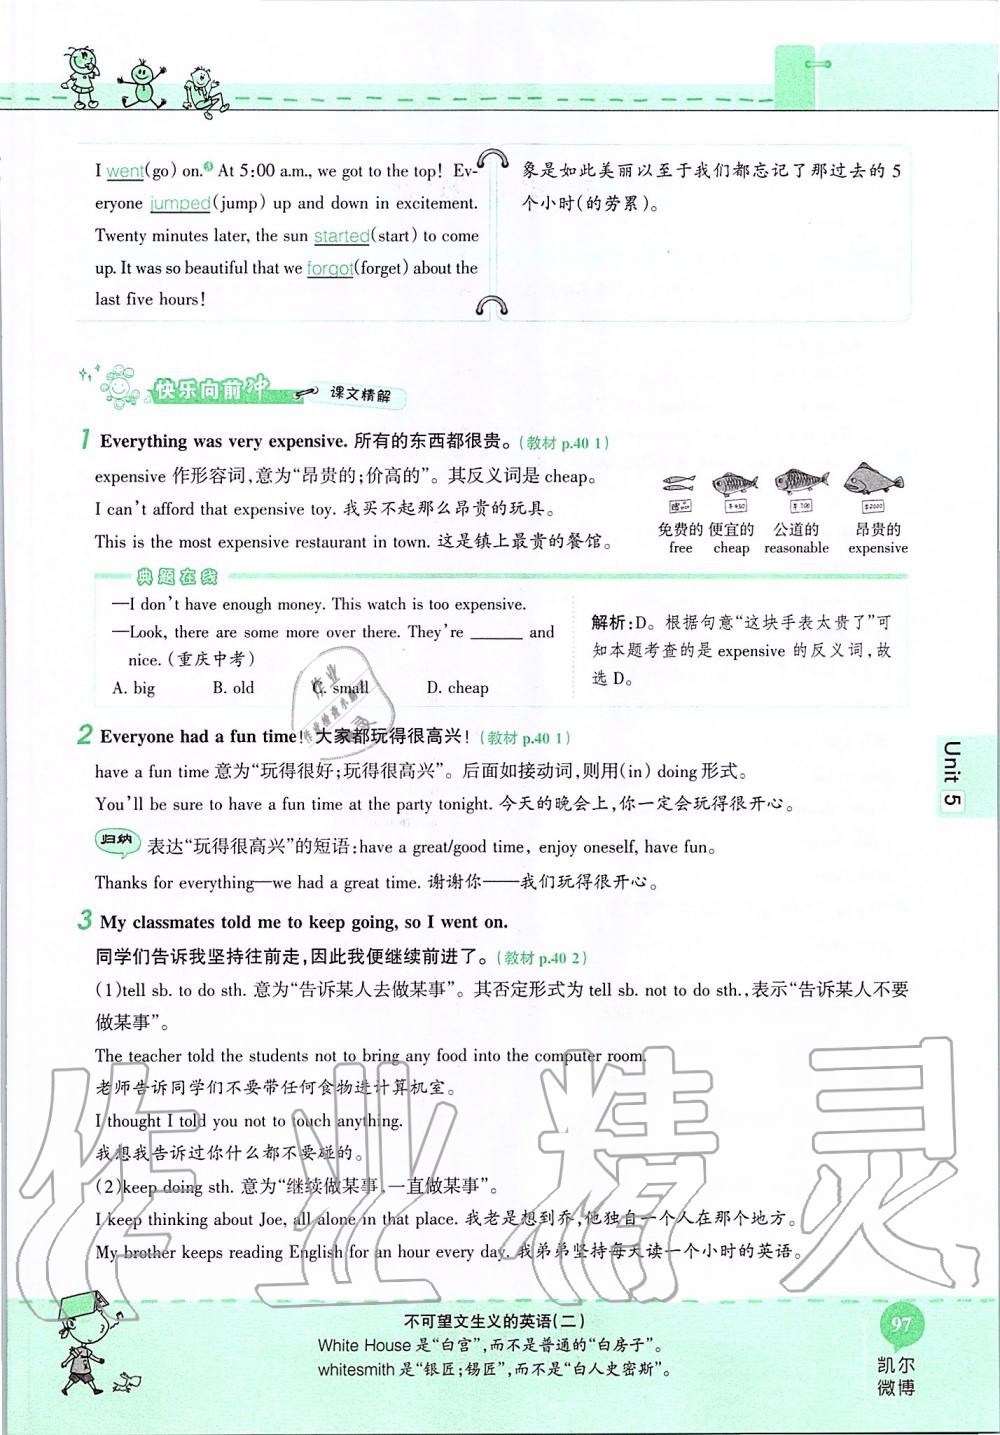 I went(go) on.③ At 5:00 a.m., we got to the top! Ev-
eryone jumped(jump) up and down in excitement.
Twenty minutes later, the sun started(start) to come
up. It was so beautiful that we forgot(forget) about the
last five hours!
象是如此美丽以至于我们都忘记了那过去的 5
个小时(的劳累)。
快乐向前冲 课文精解
1 Everything was very expensive. 所有的东西都很贵。(教材 p.40 1)
expensive 作形容词,意为“昂贵的;价高的”。其反义词是 cheap。
I can't afford that expensive toy. 我买不起那么昂贵的玩具。
This is the most expensive restaurant in town. 这是镇上最贵的餐馆。
免费的 便宜的 公道的 昂贵的
free cheap reasonable expensive
典题在线
—I don't have enough money. This watch is too expensive.
—Look, there are some more over there. They're ______ and
nice. (重庆中考)
A. big B. old C. small D. cheap
解析:D。根据句意“这块手表太贵了”可
知本题考查的是 expensive 的反义词,故
选 D。
2 Everyone had a fun time! 大家都玩得很高兴!(教材 p.40 1)
have a fun time 意为“玩得很好;玩得很高兴”。后面如接动词,则用(in) doing 形式。
You'll be sure to have a fun time at the party tonight. 今天的晚会上,你一定会玩得很开心。
归纳 表达“玩得很高兴”的短语:have a great/good time, enjoy oneself, have fun。
Thanks for everything—we had a great time. 谢谢你——我们玩得很开心。
3 My classmates told me to keep going, so I went on.
同学们告诉我坚持往前走,因此我便继续前进了。(教材 p.40 2)
(1)tell sb. to do sth. 意为“告诉某人去做某事”。其否定形式为 tell sb. not to do sth.,表示“告诉某人不要
做某事”。
The teacher told the students not to bring any food into the computer room.
老师告诉同学们不要带任何食物进计算机室。
I thought I told you not to touch anything.
我想我告诉过你什么都不要碰的。
(2)keep doing sth. 意为“继续做某事,一直做某事”。
I keep thinking about Joe, all alone in that place. 我老是想到乔,他独自一个人在那个地方。
My brother keeps reading English for an hour every day. 我弟弟坚持每天读一个小时的英语。
Unit 5
作业精灵
不可望文生义的英语(二)
White House 是“白宫”,而不是普通的“白房子”。
whitesmith 是“银匠;锡匠”,而不是“白人史密斯”。
97
凯尔
微博